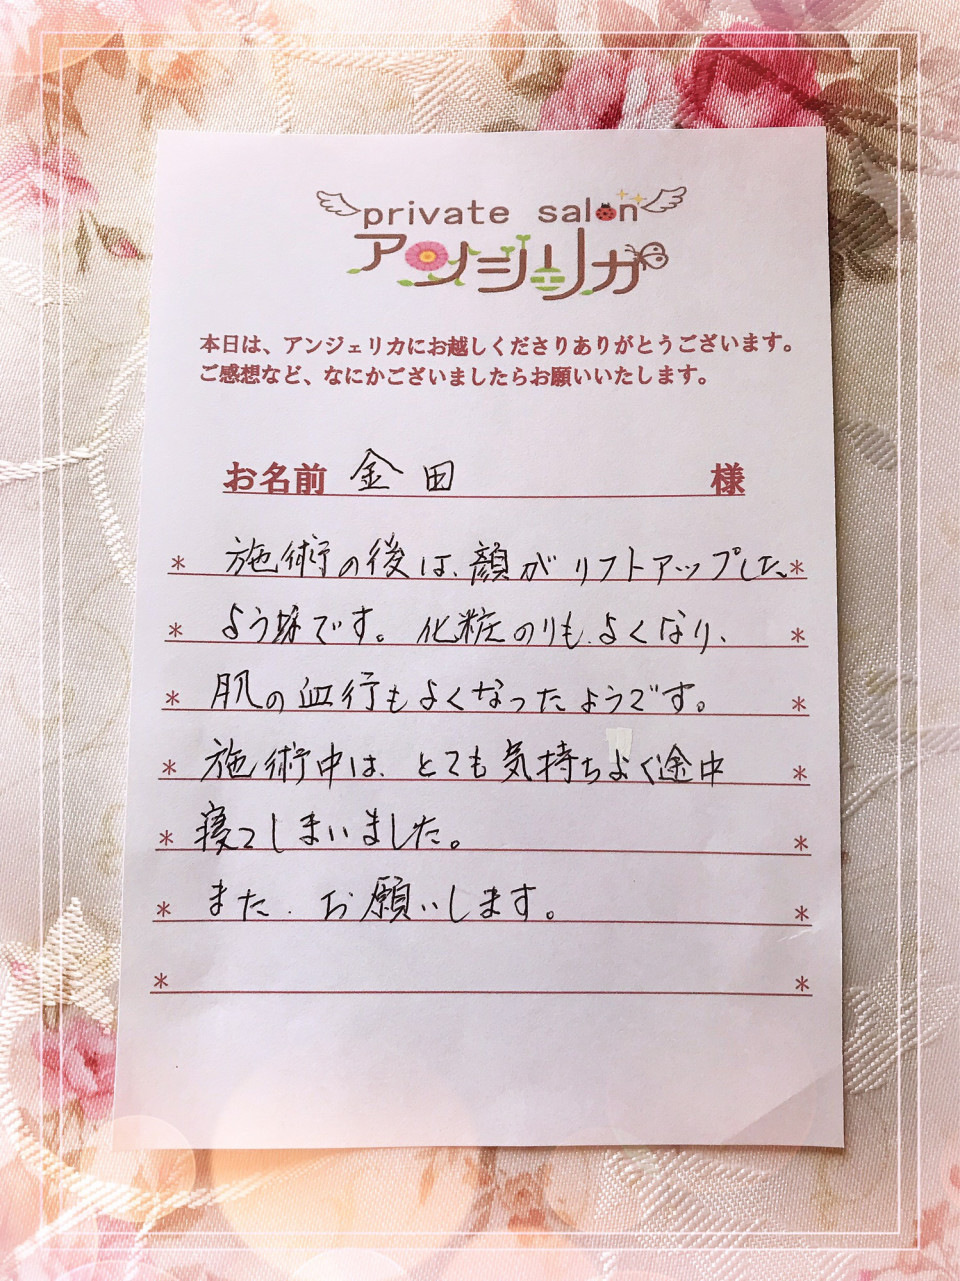 private salon
アンジェリカ
本日は、アンジェリカにお越しくださりありがとうございます。
ご感想など、なにかございましたらお願いいたします。
お名前 金田 様
* 施術の後は、顔がリフトアップした *
* よう様です。化粧のりも、よくなり、 *
* 肌の血行もよくなったようです。 *
* 施術中は、とても気持ちよく途中 *
* 寝てしまいました。 *
* また、お願いします。 *
* *